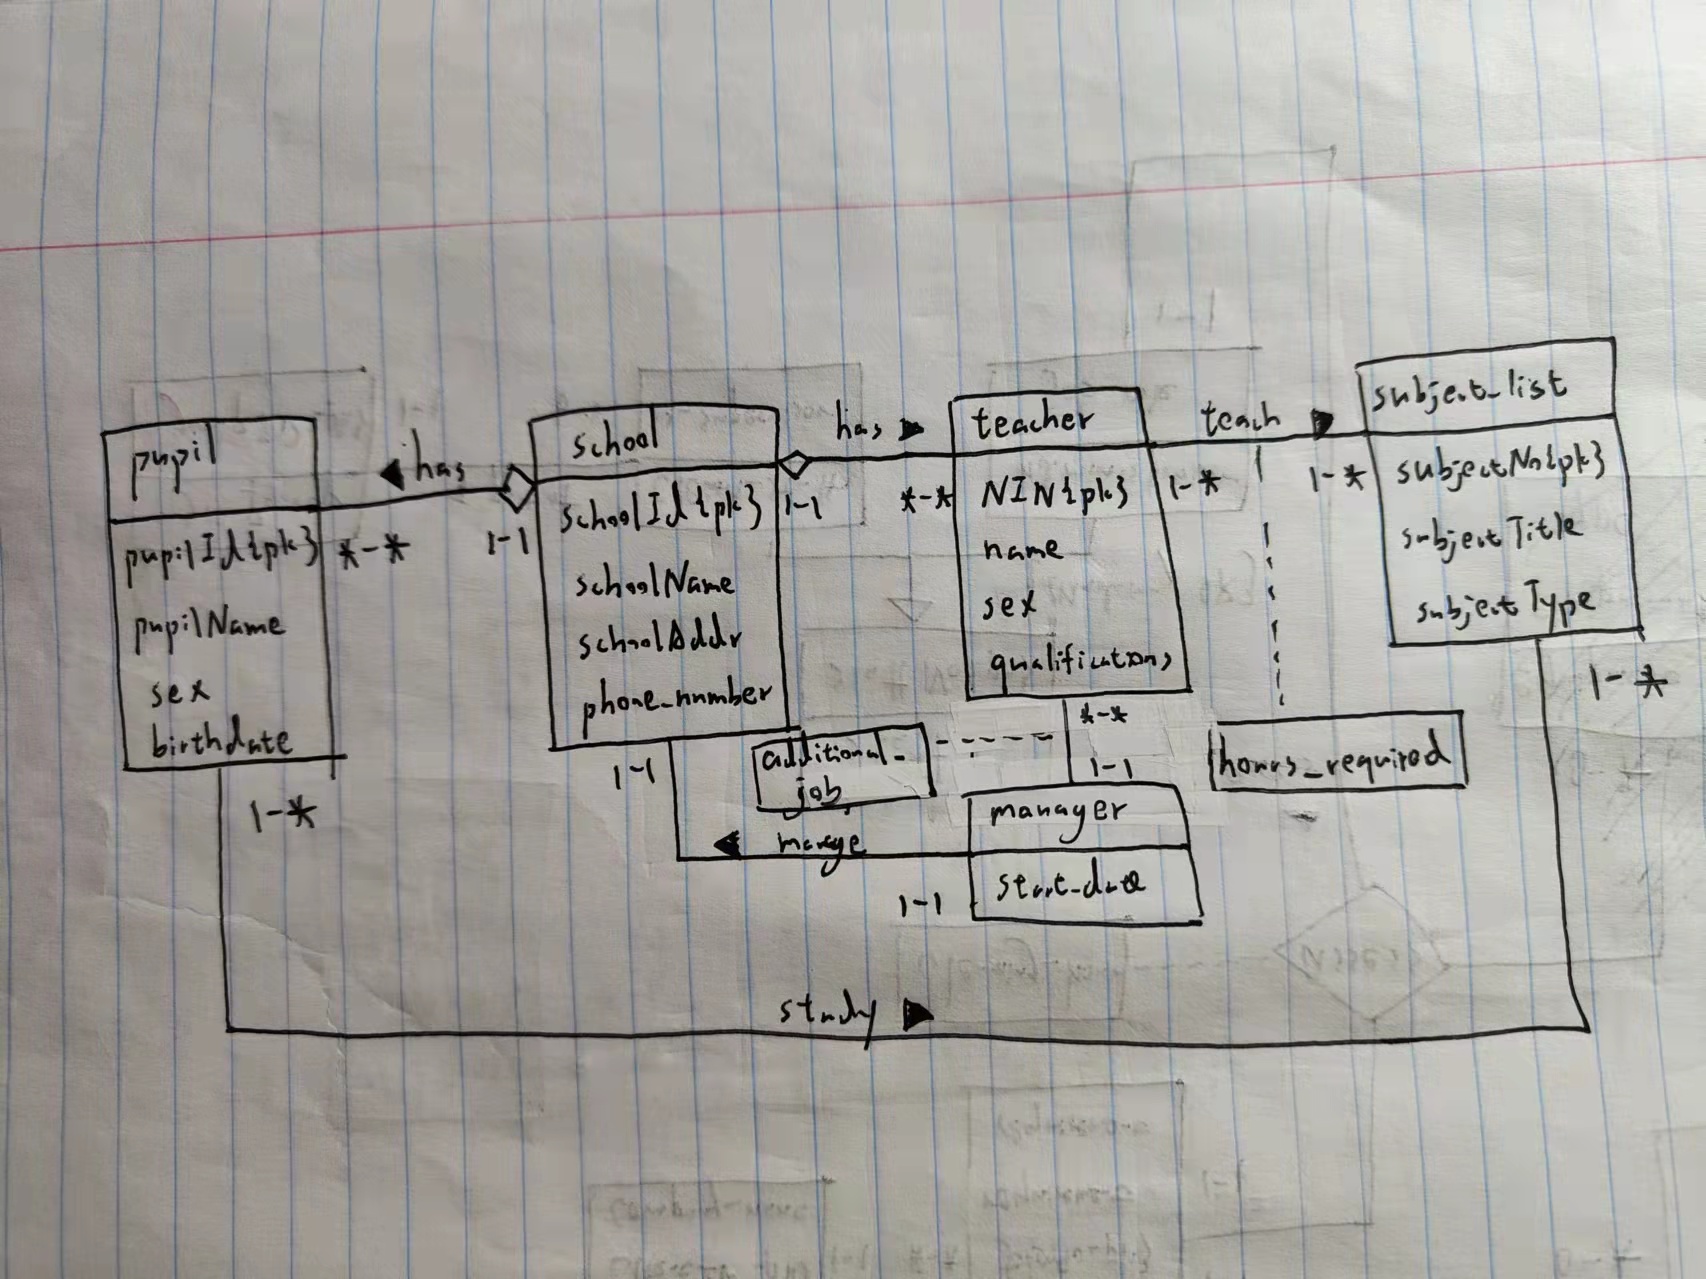 pupil
pupilId{pk}
pupilName
sex
birthdate
has
*-*
1-1
school
schoolId{pk}
schoolName
schoolAddr
phone_number
has
1-1
*-*
teacher
NIN{pk}
name
sex
qualifications
teach
1-*
1-*
subject_list
subjectNo{pk}
subjectTitle
subjectType
1-*
1-1
additional_
job
*-*
1-1
hours_required
manager
start_date
manage
1-1
1-*
study